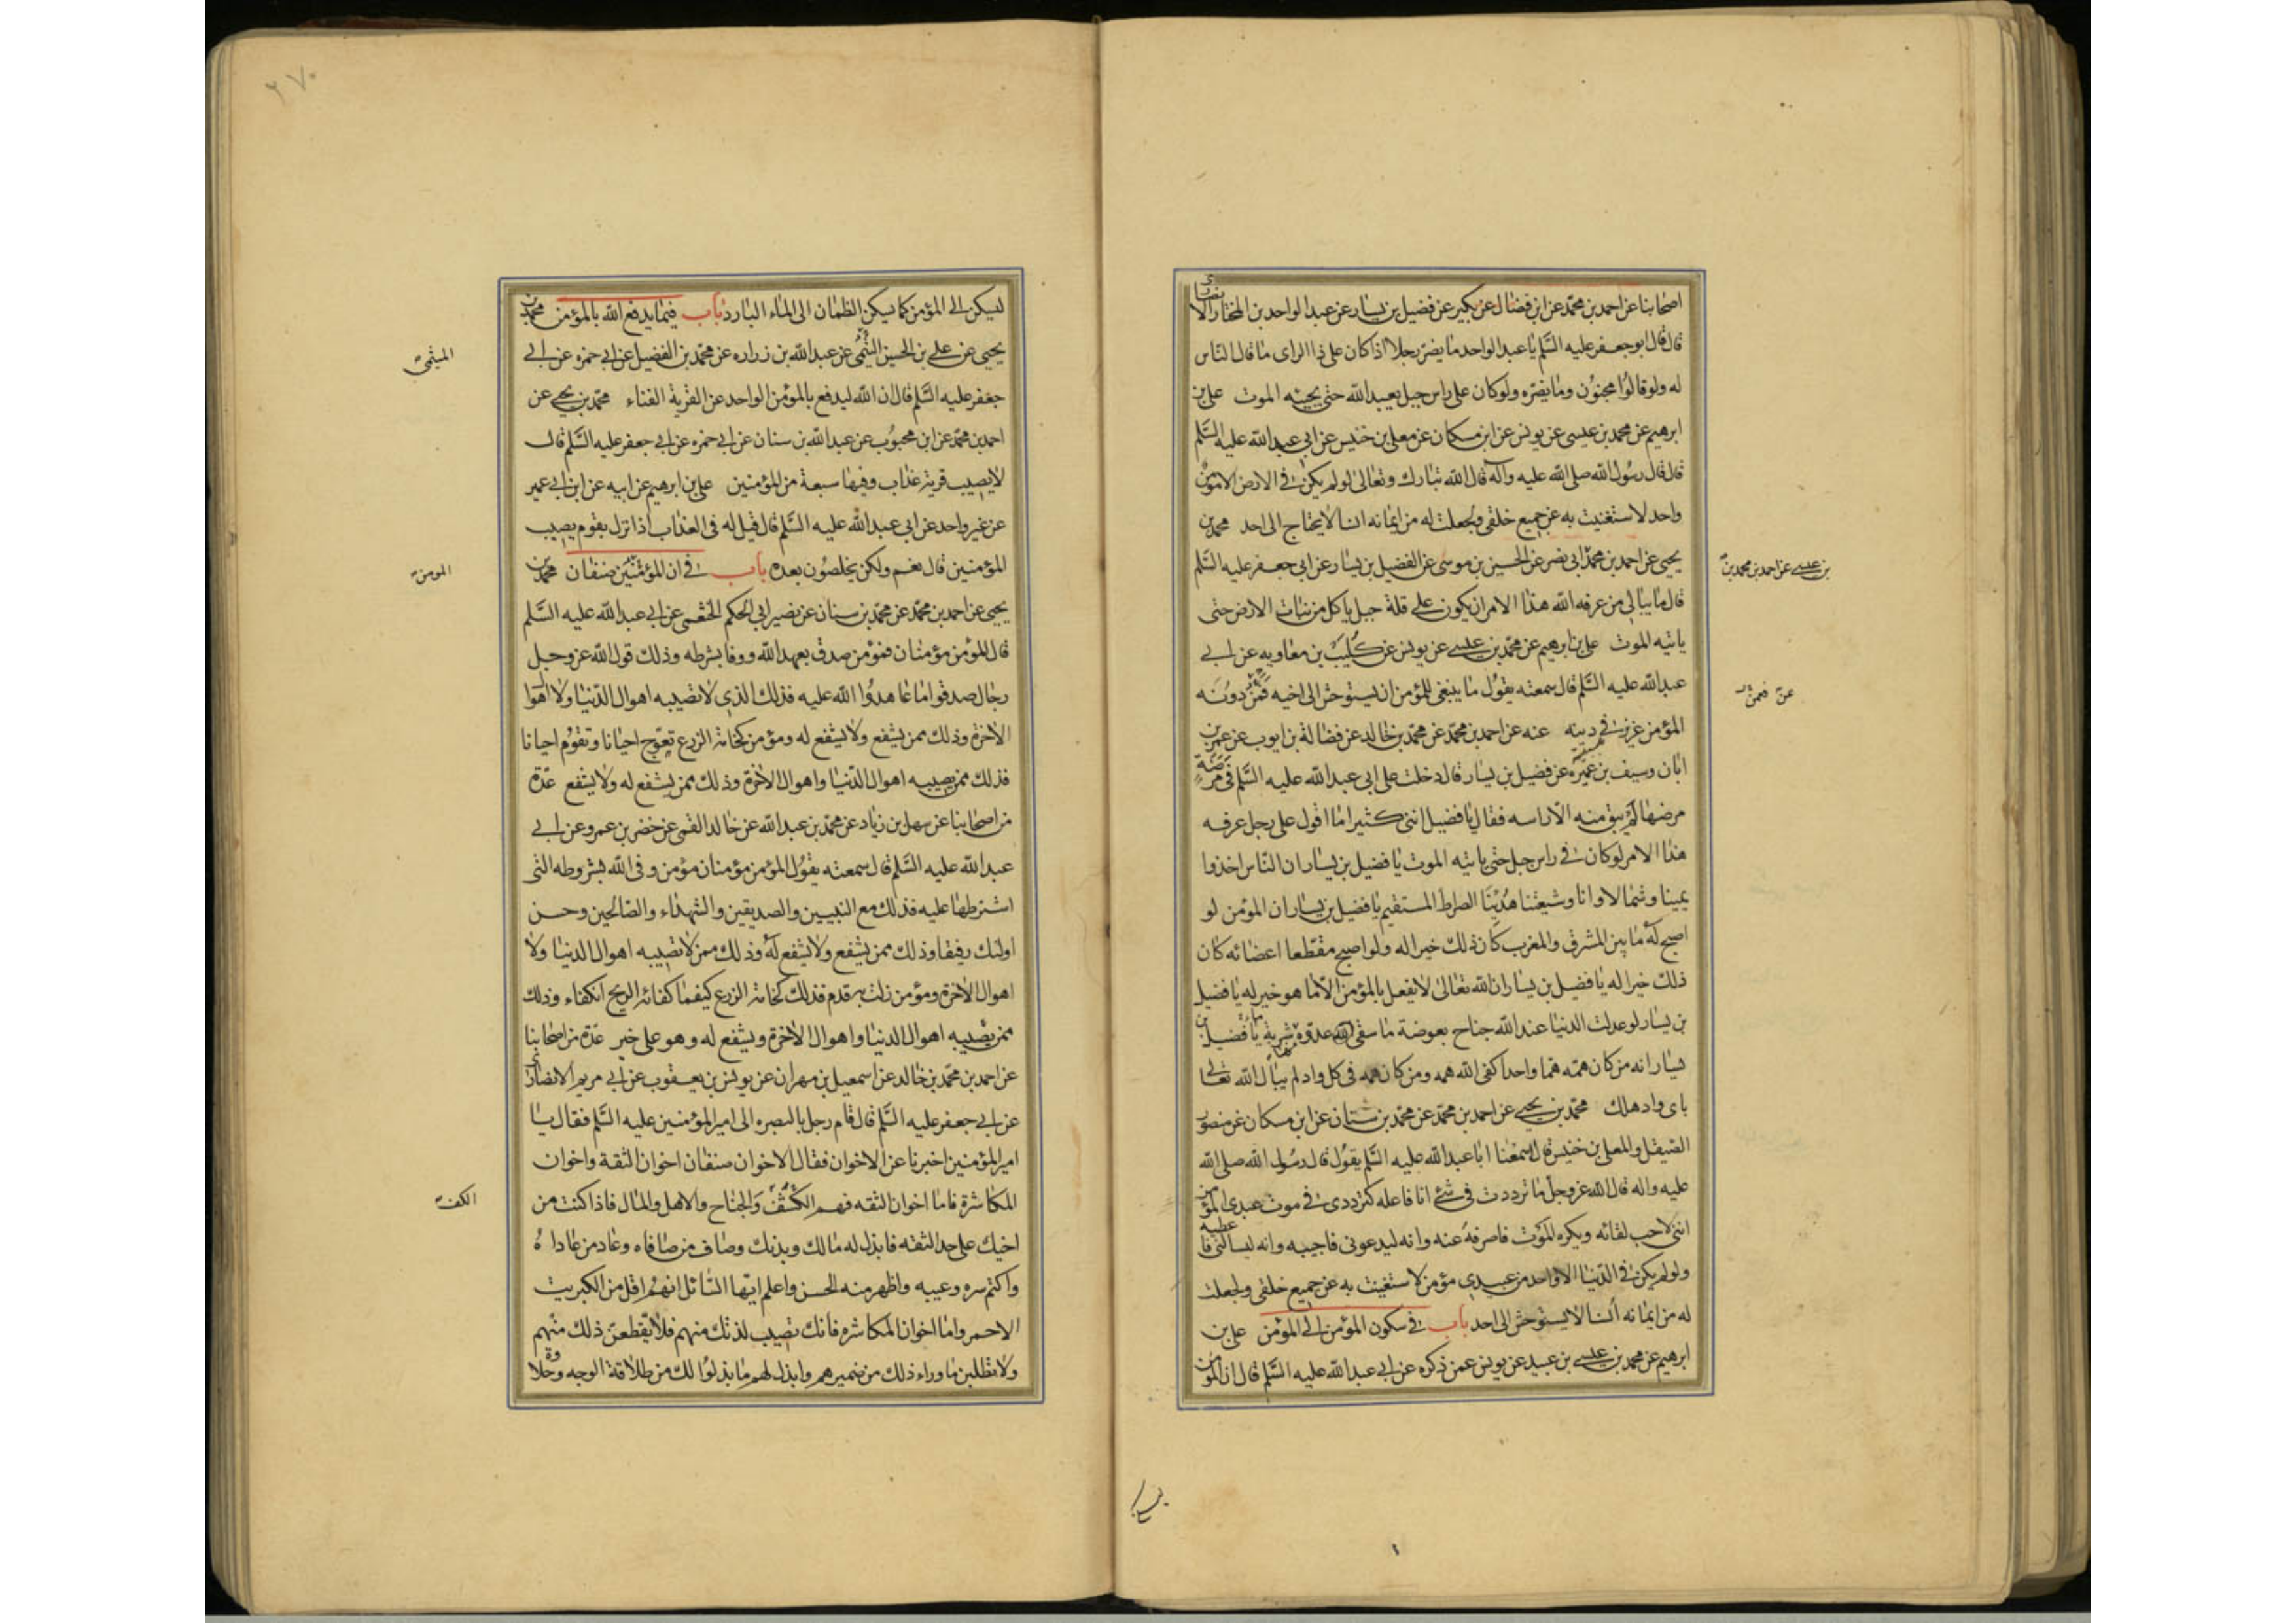 اصحابنا عن احمد بن محمد عن ابن فضال عن بكير عن فضيل بن يسار عن عبد الواحد بن المختار الانصارى
قال قال ابو جعفر عليه السّلم يا عبد الواحد ما يضرّ رجلا اذا كان على ذا الراى ما قال النّاس
له ولو قالوا مجنون وما يضرّه ولو كان على راس جبل يعبد الله حتى يجيئه الموت على بن
ابرهيم عن محمد بن عيسى عن يونس عن ابن مسكان عن معلى بن خنيس عن ابى عبد الله عليه السّلم
قال قال رسول الله صلى الله عليه وآله قال الله تبارك وتعالى لو لم يكن فى الارض الا مؤمن
واحد لاستغنيت به عن جميع خلقى ولجعلت له من ايمانه انسا لا يحتاج الى احد محمد بن
يحيى عن احمد بن محمد ابى نصر عن الحسين بن موسى عن الفضيل بن يسار عن ابى جعفر عليه السّلم
بن عيسى عن احمد بن محمد بن
قال ما يبالى من عرفه الله هذا الامر ان يكون على قلة جبل ياكل من نبات الارض حتى
ياتيه الموت على بن ابرهيم عن محمّد بن عيسى عن يونس عن كليب بن معاويه عن ابى
عبد الله عليه السّلم قال سمعته يقول ما ينبغى للمؤمن ان يستوحش الى اخيه فمن دونه
عن فمن
المؤمن عزيز فى دينه عنه عن احمد بن محمّد عن محمّد بن خالد عن فضالة بن ايوب عن عمر بن
ابان وسيف بن عميرة عن فضيل بن يسار قال دخلت على ابى عبد الله عليه السّلم فى مرضة
مرضها لم يبق منه الا راسه فقال يا فضيل اننى كثيرا ما اقول على رجل عرفه
هذا الامر لو كان فى راس جبل حتى ياتيه الموت يا فضيل بن يسار ان النّاس اخذوا
يمينا وشمالا وانا وشيعتنا هدينا الصراط المستقيم يا فضيل بن يسار ان المؤمن لو
اصبح له ما بين المشرق والمغرب كان ذلك خيرا له ولو اصبح مقطعا اعضائه كان
ذلك خيرا له يا فضيل بن يسار ان الله تعالى لا يفعل بالمؤمن الا ما هو خير له يا فضيل
بن يسار لو عدلت الدنيا عند الله جناح بعوضة ما سقى الله عدوّه منها شربة يا فضيل بن
يسار انه من كان همّه همّا واحدا كفى الله همه ومن كان همه فى كل واد لم يبال الله تعالى
باى واد هلك محمّد بن يحيى عن احمد بن محمّد عن محمّد بن سنان عن ابن مسكان عن منصور
الصيقل والمعلى بن خنيس قال سمعنا ابا عبد الله عليه السّلم يقول قال رسول الله صلى الله
عليه واله قال الله عز وجل ما ترددت فى شئ انا فاعله كترددى فى موت عبدى المؤمن
اننى لاحب لقائه ويكره الموت فاصرفه عنه وانه ليدعونى فاجيبه وانه ليسالنى فاعطيه
ولو لم يكن فى الدّنيا الا واحد من عبيدى مؤمن لاستغنيت به عن جميع خلقى ولجعلت
له من ايمانه انسا لا يستوحش الى احد باب فى سكون المؤمن الى المؤمن على بن
ابرهيم عن محمد بن عيسى بن عبيد عن يونس عمن ذكره عن ابى عبد الله عليه السّلم قال ان المؤمن
٢٧٠
ليسكن الى المؤمن كما يسكن الظمان الى الماء البارد باب فيما يدفع الله بالمؤمن محمد بن
يحيى عن على بن الحسين التيمى عن عبد الله بن زراره عن محمّد بن الفضيل عن ابى حمزه عن ابى
الميثمى
جعفر عليه السّلم قال ان الله ليدفع بالمؤمن الواحد عن القرية الفناء محمّد بن يحيى عن
احمد بن محمّد عن ابن محبوب عن عبد الله بن سنان عن ابى حمزه عن ابى جعفر عليه السّلم قال
لا يصيب قرية عذاب وفيها سبعة من المؤمنين على بن ابرهيم عن ابيه عن ابن ابى عمير
عن غير واحد عن ابى عبد الله عليه السّلم قال قيل له فى العذاب اذا نزل بقوم يصيب
المؤمنين قال نعم ولكن يخلصون بعده باب فى ان المؤمنين صنفان محمّد بن
المومن
يحيى عن احمد بن محمّد عن محمّد بن سنان عن نصير ابى الحكم الخثعمى عن ابى عبد الله عليه السّلم
قال المؤمن مؤمنان فمؤمن صدق بعهد الله ووفا بشرطه وذلك قول الله عز وجل
رجال صدقوا ما عاهدوا الله عليه فذلك الذى لا تصيبه اهوال الدّنيا ولا اهوال
الاخرة وذلك ممن يشفع ولا يشفع له ومؤمن كخامة الزرع تعوّج احيانا وتقوم احيانا
فذلك ممن يصيبه اهوال الدّنيا واهوال الاخرة وذلك ممن يشفع له ولا يشفع عدّة
من اصحابنا عن سهل بن زياد عن محمّد بن عبد الله عن خالد القمى عن خضر بن عمرو عن ابى
عبد الله عليه السّلم قال سمعته يقول المؤمن مؤمنان مؤمن وفى الله بشروطه التى
اشترطها عليه فذلك مع النبيين والصديقين والشهداء والصّالحين وحسن
اولئك رفيقا وذلك ممن يشفع ولا يشفع له وذلك ممن لا تصيبه اهوال الدنيا ولا
اهوال الاخرة ومؤمن زلت به قدم فذلك كخامة الزرع كيفما كفائه الريح انكفاء وذلك
ممن تصيبه اهوال الدنيا واهوال الاخرة ويشفع له وهو على خير عدّة من اصحابنا
عن احمد بن محمّد بن خالد عن اسمعيل بن مهران عن يونس بن يعقوب عن ابى مريم الانصارى
عن ابى جعفر عليه السّلم قال قام رجل بالبصره الى امير المؤمنين عليه السّلم فقال يا
امير المؤمنين اخبرنا عن الاخوان فقال الاخوان صنفان اخوان الثقة واخوان
المكاشرة فاما اخوان الثقه فهم الكشف والجناح والاهل والمال فاذا كنت من
الكف
اخيك على حد الثقه فابذل له مالك وبدنك وصاف من صافاه وعاد من عاداه
واكتم سره وعيبه واظهر منه الحسن واعلم ايّها السّائل انهم اقل من الكبريت
الاحمر واما اخوان المكاشره فانك تصيب لذتك منهم فلا تقطعنّ ذلك منهم
ولا تطلبن ما وراء ذلك من ضميرهم وابذل لهم ما بذلوا لك من طلاقة الوجه وحلاوة